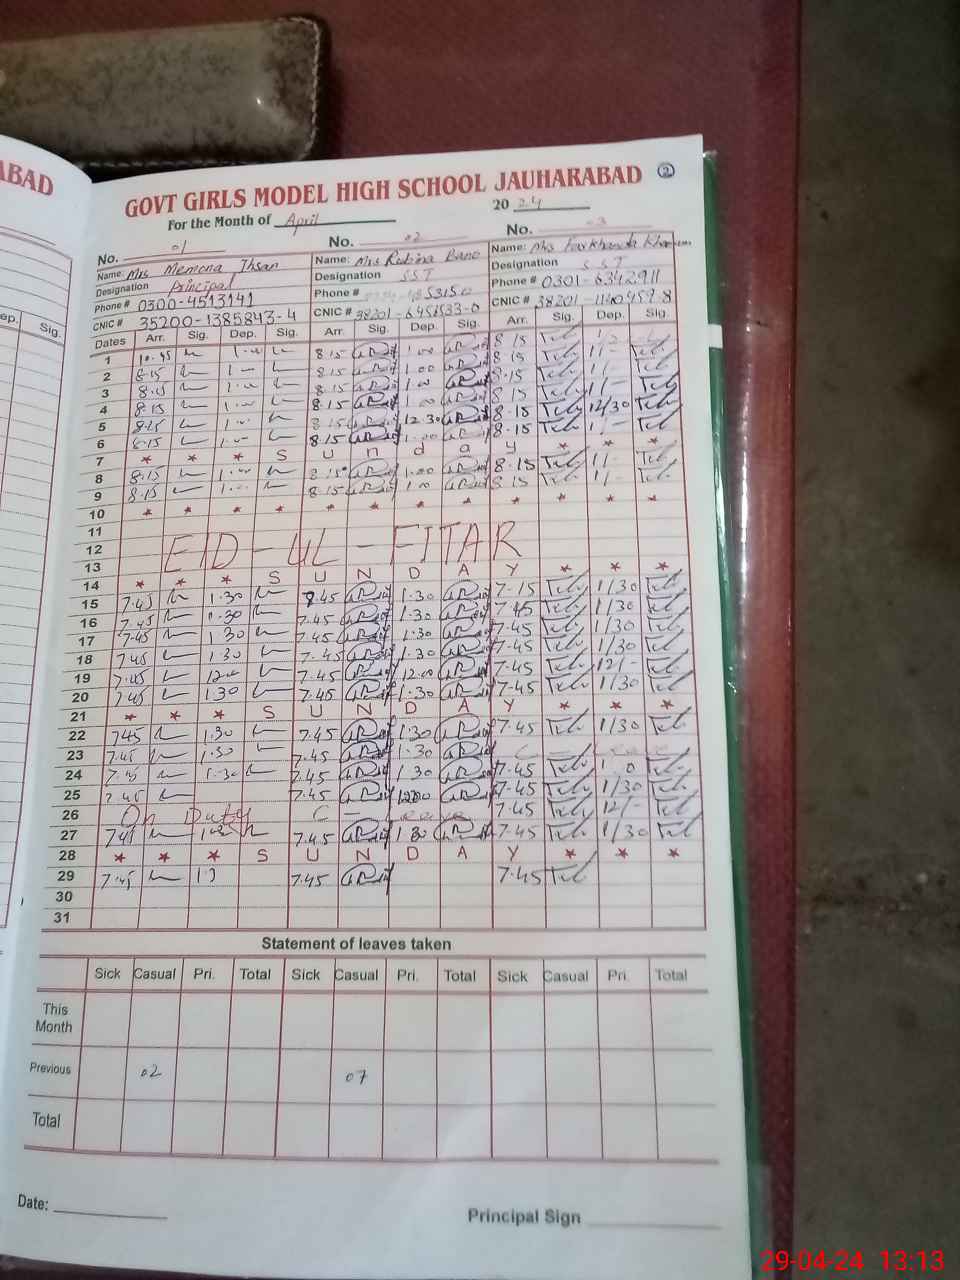 ABAD
GOVT GIRLS MODEL HIGH SCHOOL JAUHARABAD 2
For the Month of April 2024
No. 01 No. 02 No. 03
Name: Mrs Memona Ihsan Name: Mrs Rubina Bano Name: Mrs Farkhanda
Designation Principal Designation SST Designation SST
Phone # 0300-4513141 Phone # Phone # 0301-6342911
CNIC # 35200-1385843-4 CNIC # 38201-6451533-0 CNIC # 38201-1140959.8
ep. Sig.
Dates Arr. Sig. Dep. Sig. Arr. Sig. Dep. Sig. Arr. Sig. Dep. Sig.
1 10.45 8.15 1.00 8.15
2 8.15 8.15 1.00 8.15
3 8.15 8.15 1.00 8.15
4 8.15 8.15 1.00 8.15
5 8.15 8.15 12.30 8.15 12/30
6 8.15 8.15 1.00 8.15
7 * * * S u n d a y * * *
8 8.15 8.15 1.00 8.15
9 8.15 8.15 1.00 8.15
10 * * * * * * * * * * *
11
12 EID-UL-FITAR
13
14 * * * S U N D A Y * * *
15 7.45 1.30 7.45 1.30 7.15 1/30
16 7.45 1.30 7.45 1.30 7.45 1/30
17 7.45 1.30 7.45 1.30 7.45 1/30
18 7.45 1.30 7.45 1.30 7.45 1/30
19 7.45 12.00 7.45 12.00 7.45 12/-
20 7.45 1.30 7.45 1.30 7.45 1/30
21 * * * S U N D A Y * * *
22 7.45 1.30 7.45 1.30 7.45 1/30
23 7.45 1.30 7.45 1.30 C - Leave
24 7.45 1.30 7.45 1.30 7.45
25 7.45 7.45 7.45 1/30
26 On Duty C - Leave 7.45 12/-
27 7.45 7.45 1.30 7.45 1/30
28 * * * S U N D A Y * * *
29 7.45 7.45 7.45
30
31
Statement of leaves taken
Sick Casual Pri. Total Sick Casual Pri. Total Sick Casual Pri. Total
This Month
Previous 02 07
Total
Date: Principal Sign
29-04-24 13:13